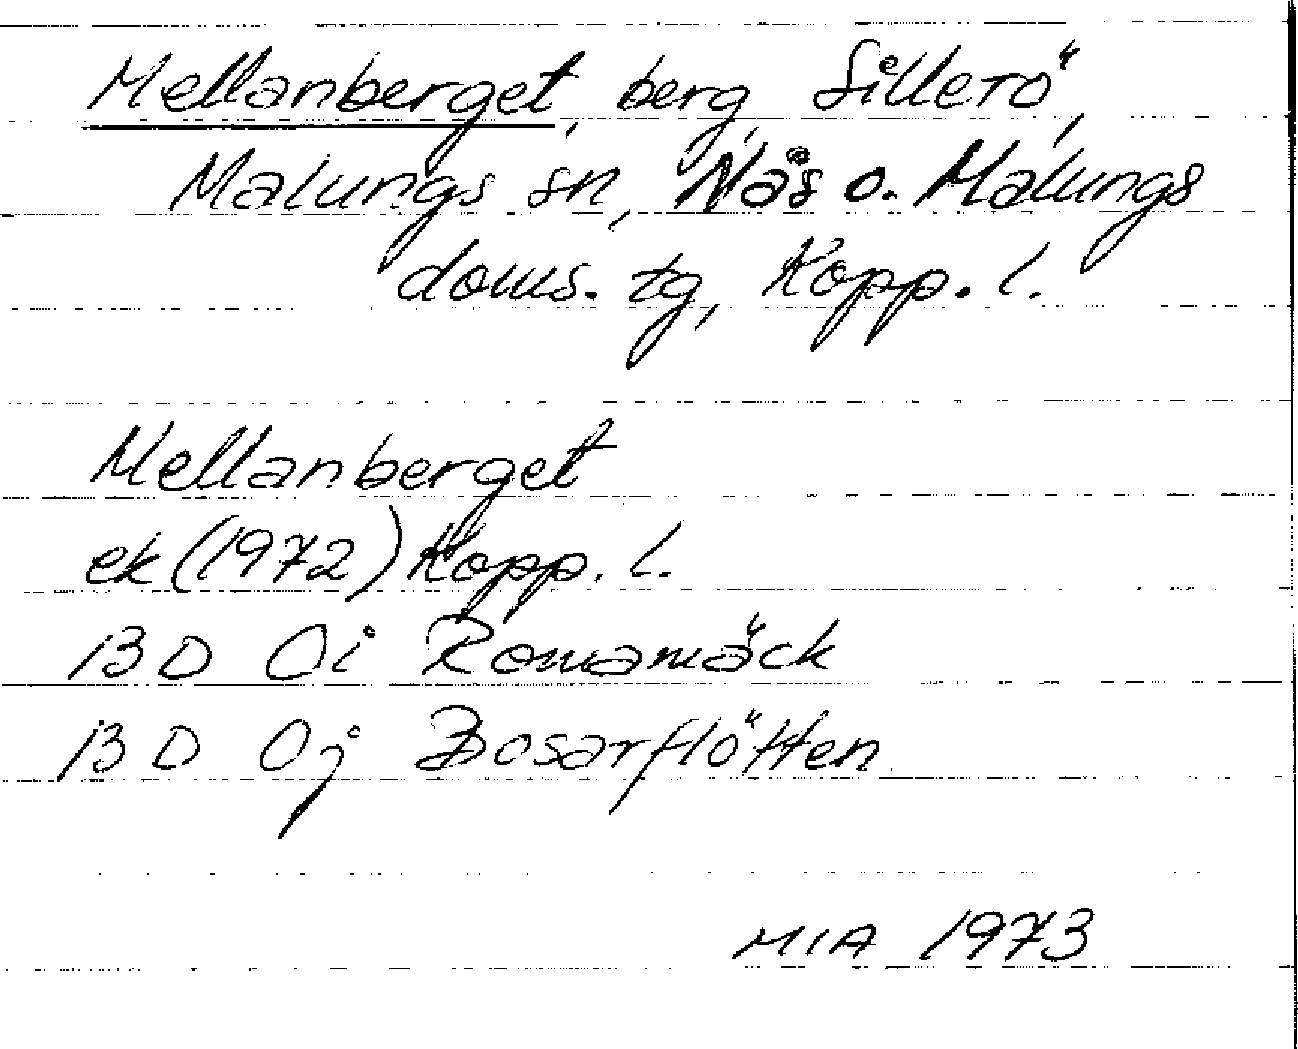 Mellanberget, berg, Sillerö,
Malungs sn, Nås o. Malungs
doms. tg, Kopp. l.
Mellanberget
ek (1972) Kopp. l.
13 D 0i Romamäck
13 D 0j Bosarflötten
MIA 1973